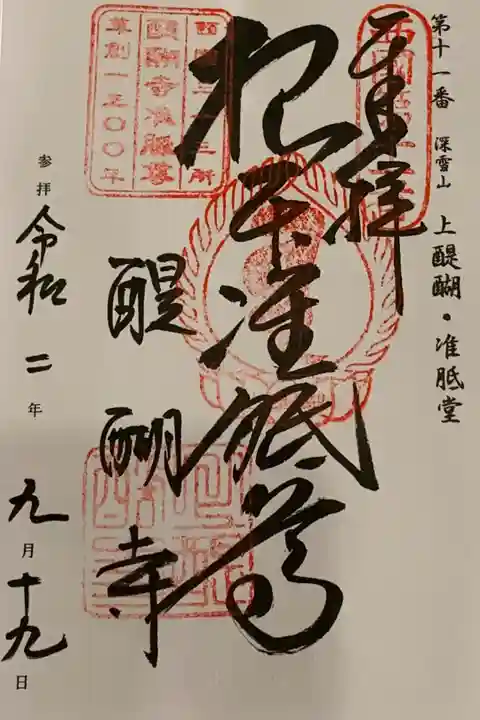 第十一番 深雪山 上醍醐・准胝堂
奉拝
根本准胝尊
醍醐寺
参拝 令和二年 九月十九日
西国三十三所
醍醐寺准胝尊
草創一三〇〇年